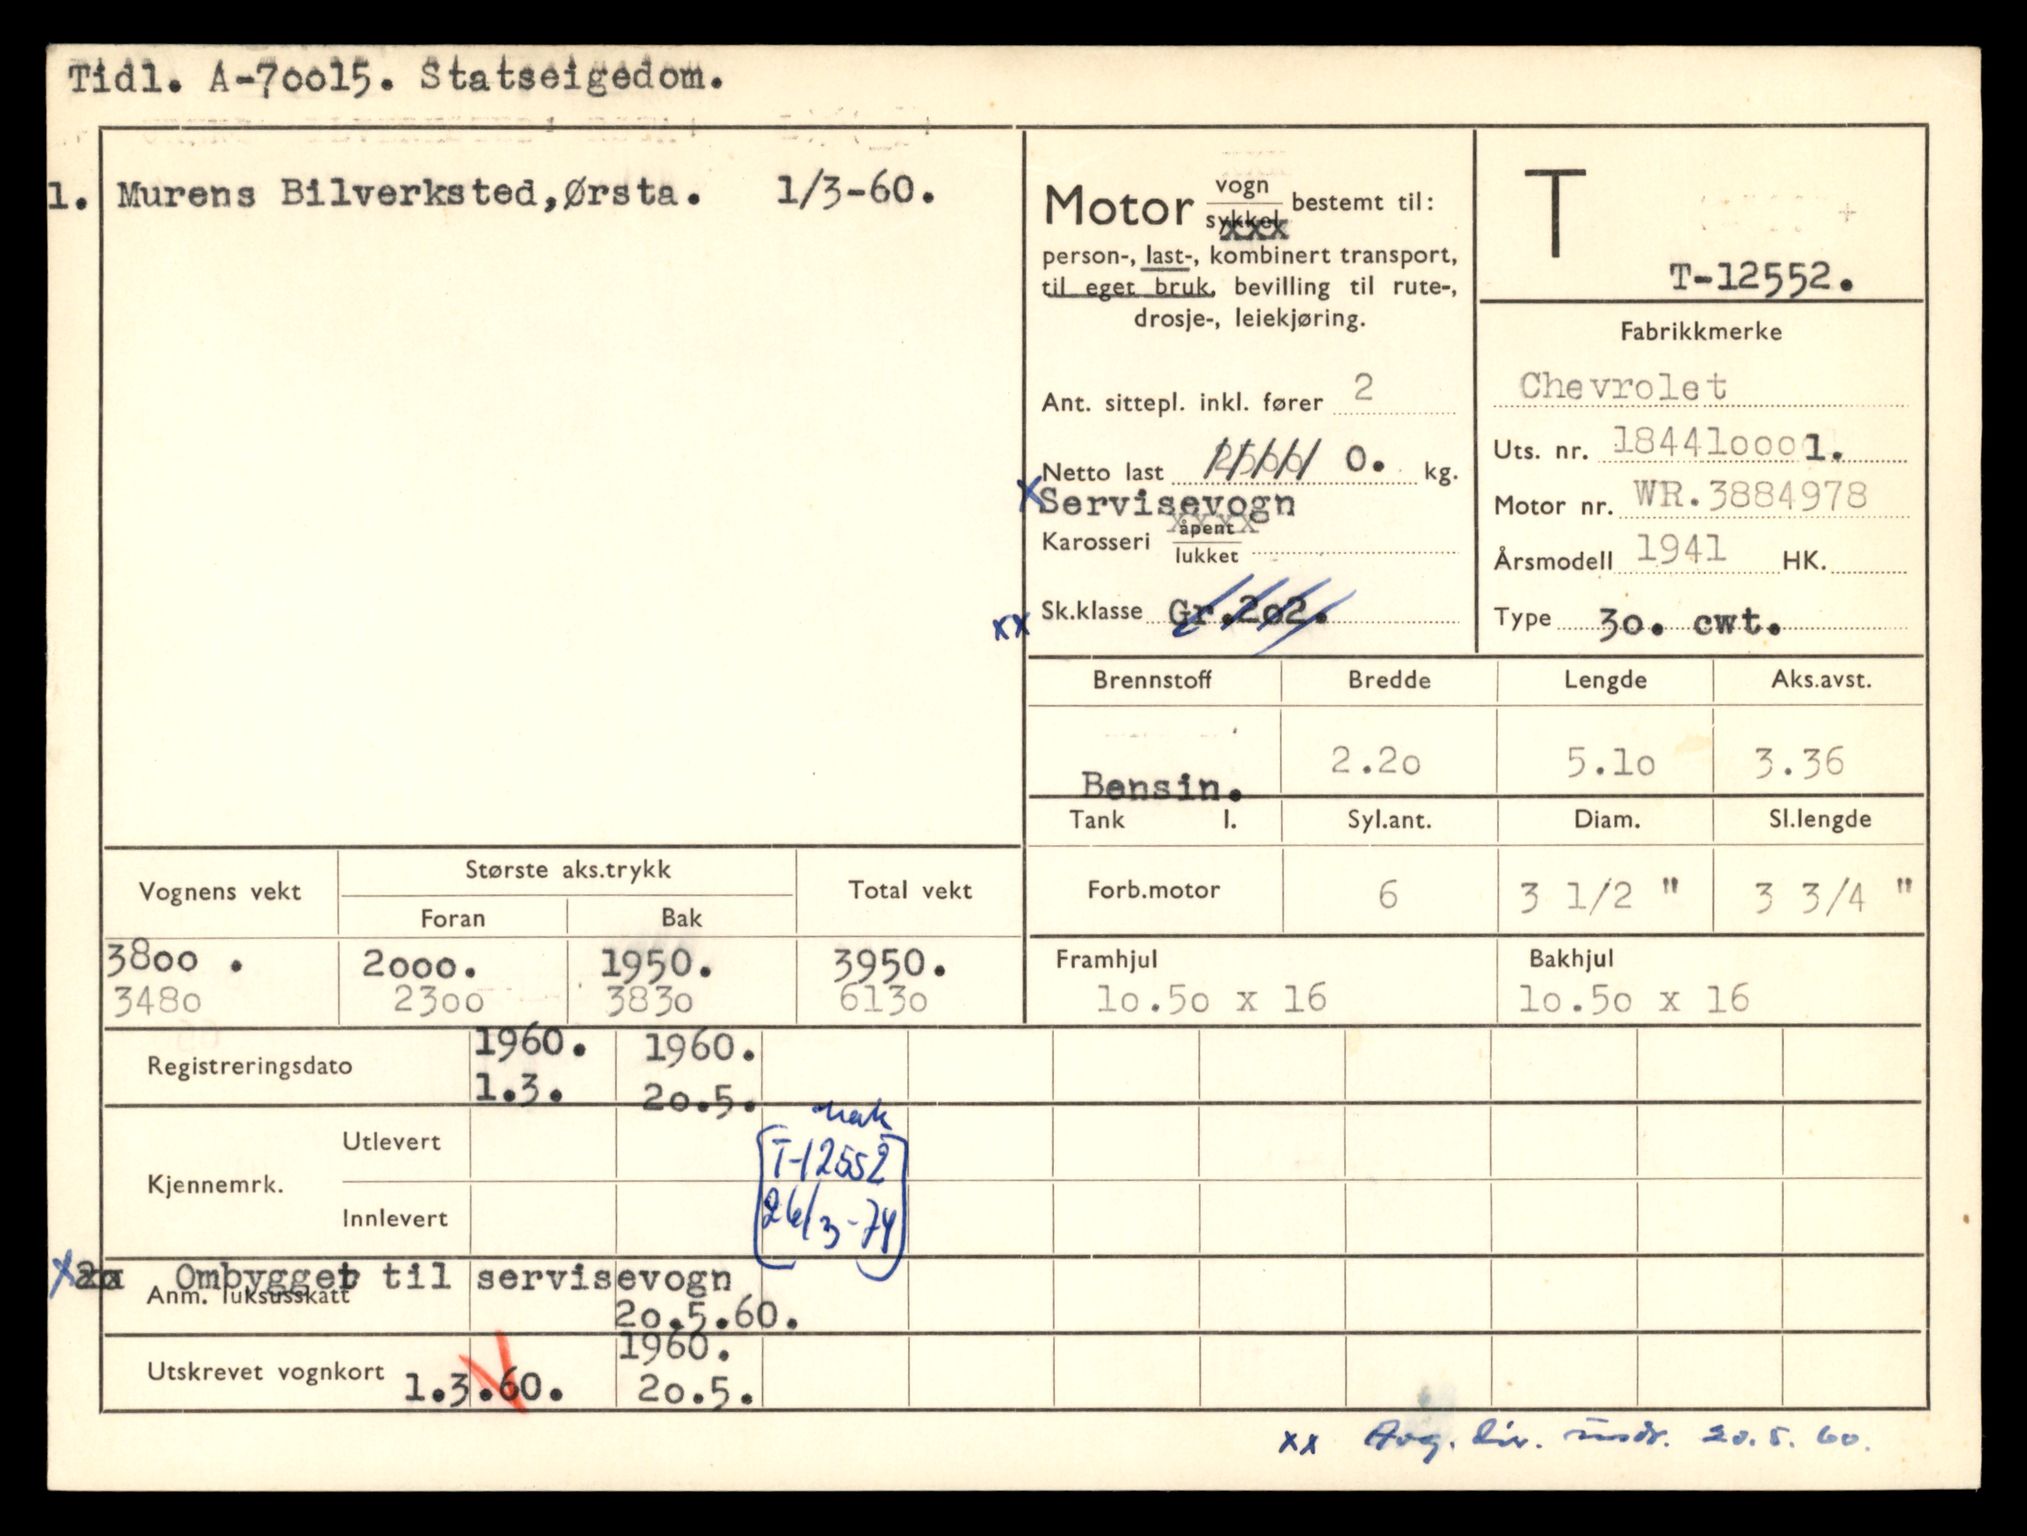 Tidl. A-70015. Statseigedom.
1. Murens Bilverksted,Ørsta. 1/3-60.
Motor vogn/sykkel bestemt til:
xxx
person-, last-, kombinert transport,
til eget bruk, bevilling til rute-,
drosje-, leiekjøring.
Ant. sittepl. inkl. fører 2
Netto last 0. kg.
x Servisevogn
xxxx
Karosseri åpent/lukket
xx Sk.klasse Gr.2o2.
T
T-12552.
Fabrikkmerke
Chevrolet
Uts. nr. 18441ooo1.
Motor nr. WR.3884978
Årsmodell 1941 HK.
Type 3o. cwt.
Brennstoff Bredde Lengde Aks.avst.
Bensin. 2.2o 5.1o 3.36
Tank l. Syl.ant. Diam. Sl.lengde
Forb.motor 6 3 1/2 " 3 3/4 "
Framhjul Bakhjul
1o.5o x 16 1o.5o x 16
Vognens vekt Største aks.trykk Total vekt
Foran Bak
38oo . 2ooo. 1950. 3950.
348o 23oo 383o 613o
Registreringsdato 1960. 1960.
1.3. 2o.5.
Kjennemrk. Utlevert
Innlevert
T-12552
26/3-74
x Ombygget til servisevogn
Anm. luksusskatt 2o.5.60.
Utskrevet vognkort 1.3.60. 1960.
2o.5.
xx Avg. div. 20.5.60.